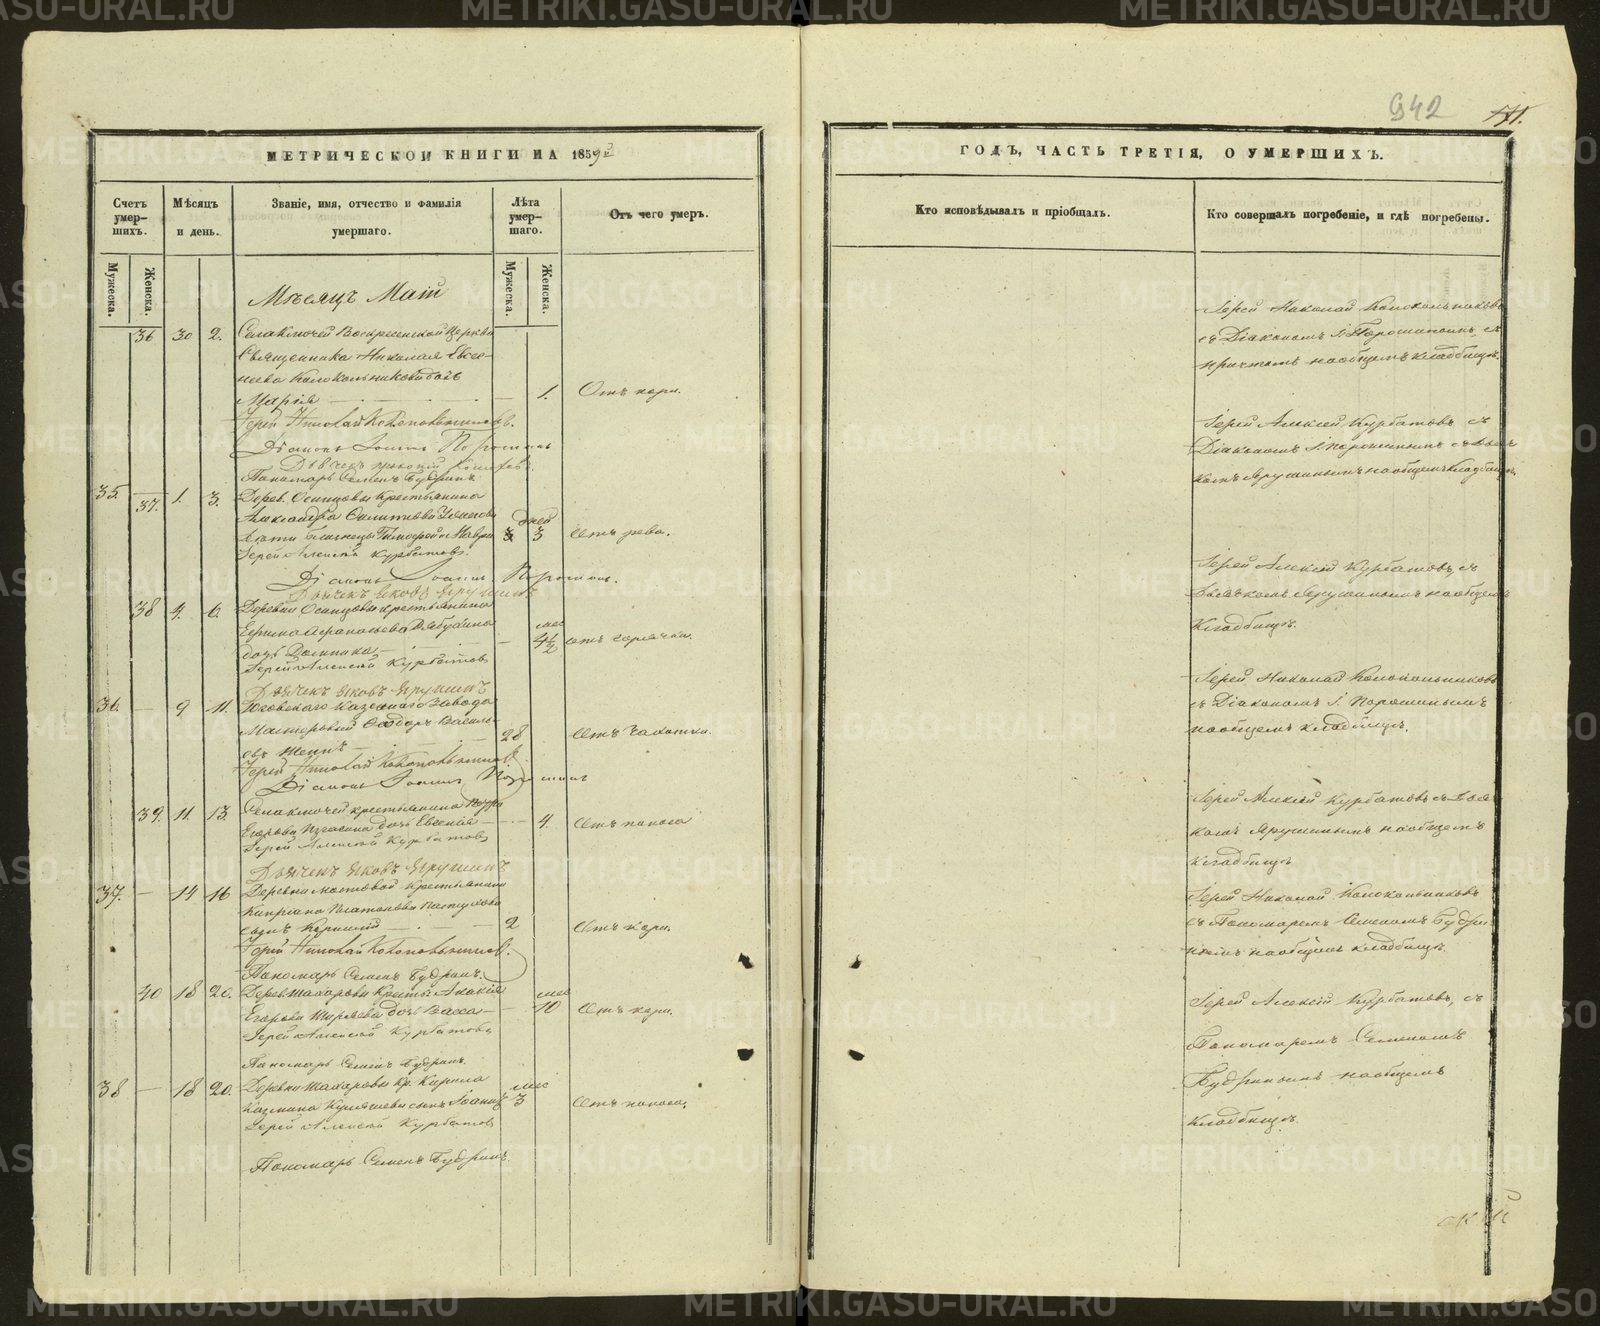 942
171.
МЕТРИЧЕСКОЙ КНИГИ НА 1859й
Счетъ умер-
шихъ.
Мѣсяцъ
и день.
Званіе, имя, отчество и фамилія
умершаго.
Лѣта
умер-
шаго.
Отъ чего умеръ.
Мужеска.
Женска.
Мужеска.
Женска.
Мѣсяцъ Маій
36 30 2. Села Ключей Воскресенской Церкви
Священника Николая Евсе-
Колокольникова дочь
Марія 1. Отъ кори.
Іерей Николай Колокольниковъ.
Діаконъ Іоаннъ Порошинъ
Пономарь Семенъ Будринъ
35. 37. 1. 3. Дерев. Осинцовы Крестьянина
Александра
дней
дѣти близнецы Тимофей и Мавра 3 3 Отъ рева.
Іерей Алексій Курбатовъ.
Діаконъ Іоаннъ Порошинъ.
Дьячекъ Яковъ Ярушинъ
38 4. 6. Деревни Осинцовы крестьянина
Ефима
мес
дочь Домника 4½ отъ горячки.
Іерей Алексій Курбатовъ
Дьячекъ Яковъ Ярушинъ
36. 9 11. Юговскаго Казеннаго Завода
Мастеровый Өеодоръ Василь-
28 Отъ чахотки.
Іерей Николай Колокольниковъ.
Діаконъ Іоаннъ Порошинъ
39. 11. 13. Села Ключей крестьянина
Егорова дочь Евсенія 4. Отъ поноса
Іерей Алексій Курбатовъ
Дьячекъ Яковъ Ярушинъ
37. 14 16 Деревни Мостовой Крестьянина
Кипріана Платонова Пастухова
сынъ 2 Отъ кори.
Іерей Николай Колокольниковъ.
Пономарь Семенъ Будринъ.
40 18 20. Дерев. Макаровы Крест. Акакія
мес
Егорова дочь Васса 10 Отъ кори.
Іерей Алексій Курбатовъ
Пономарь Семенъ Будринъ.
38 18 20. Деревни Макаровы Кр. Кирила
мес
сынъ Іоаннъ 3 Отъ поноса.
Іерей Алексій Курбатовъ
Пономарь Семенъ Будринъ.
ГОДЪ, ЧАСТЬ ТРЕТІЯ, О УМЕРШИХЪ.
Кто исповѣдывалъ и пріобщалъ.
Кто совершалъ погребеніе, и гдѣ погребены.
Іерей Николай Колокольниковъ
съ Діакономъ І. Порошинымъ съ
причтомъ на общемъ кладбищѣ.
Іерей Алексій Курбатовъ съ
Діакономъ І. Порошинымъ съ Дьяч-
комъ Ярушинымъ на общемъ кладбищѣ.
Іерей Алексій Курбатовъ, съ
Дьячкомъ Ярушинымъ на общемъ
кладбищѣ.
Іерей Николай Колокольниковъ
съ Діакономъ І. Порошинымъ
на общемъ кладбищѣ.
Іерей Алексій Курбатовъ съ Дьяч-
комъ Ярушинымъ на общемъ
кладбищѣ
Іерей Николай Колокольниковъ
съ Пономаремъ Семеномъ Будри-
нымъ на общемъ кладбищѣ.
Іерей Алексій Курбатовъ, съ
Пономаремъ Семеномъ
Будринымъ на общемъ
кладбищѣ.
METRIKI.GASO-URAL.RU